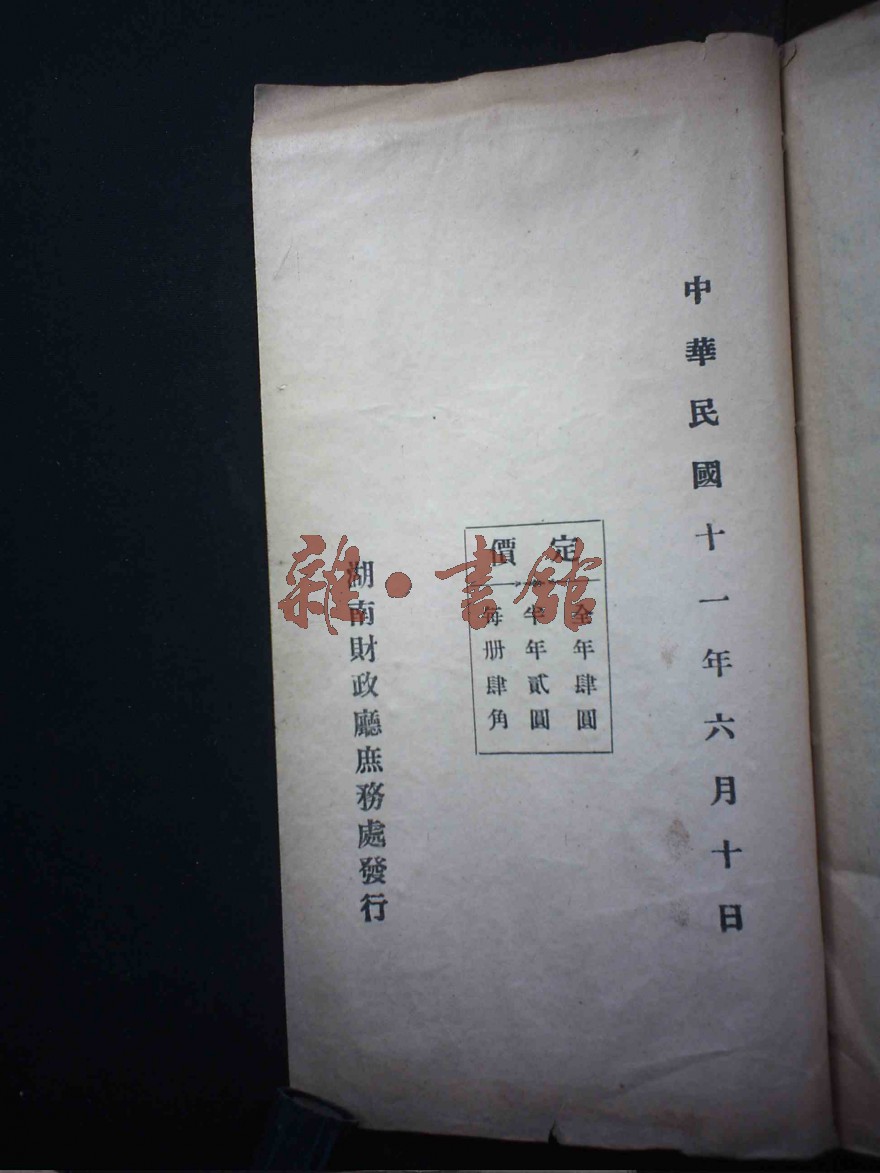 中華民國十一年六月十日
定價
全年肆圓
半年貳圓
每册肆角
湖南財政廳庶務處發行
雜·書館